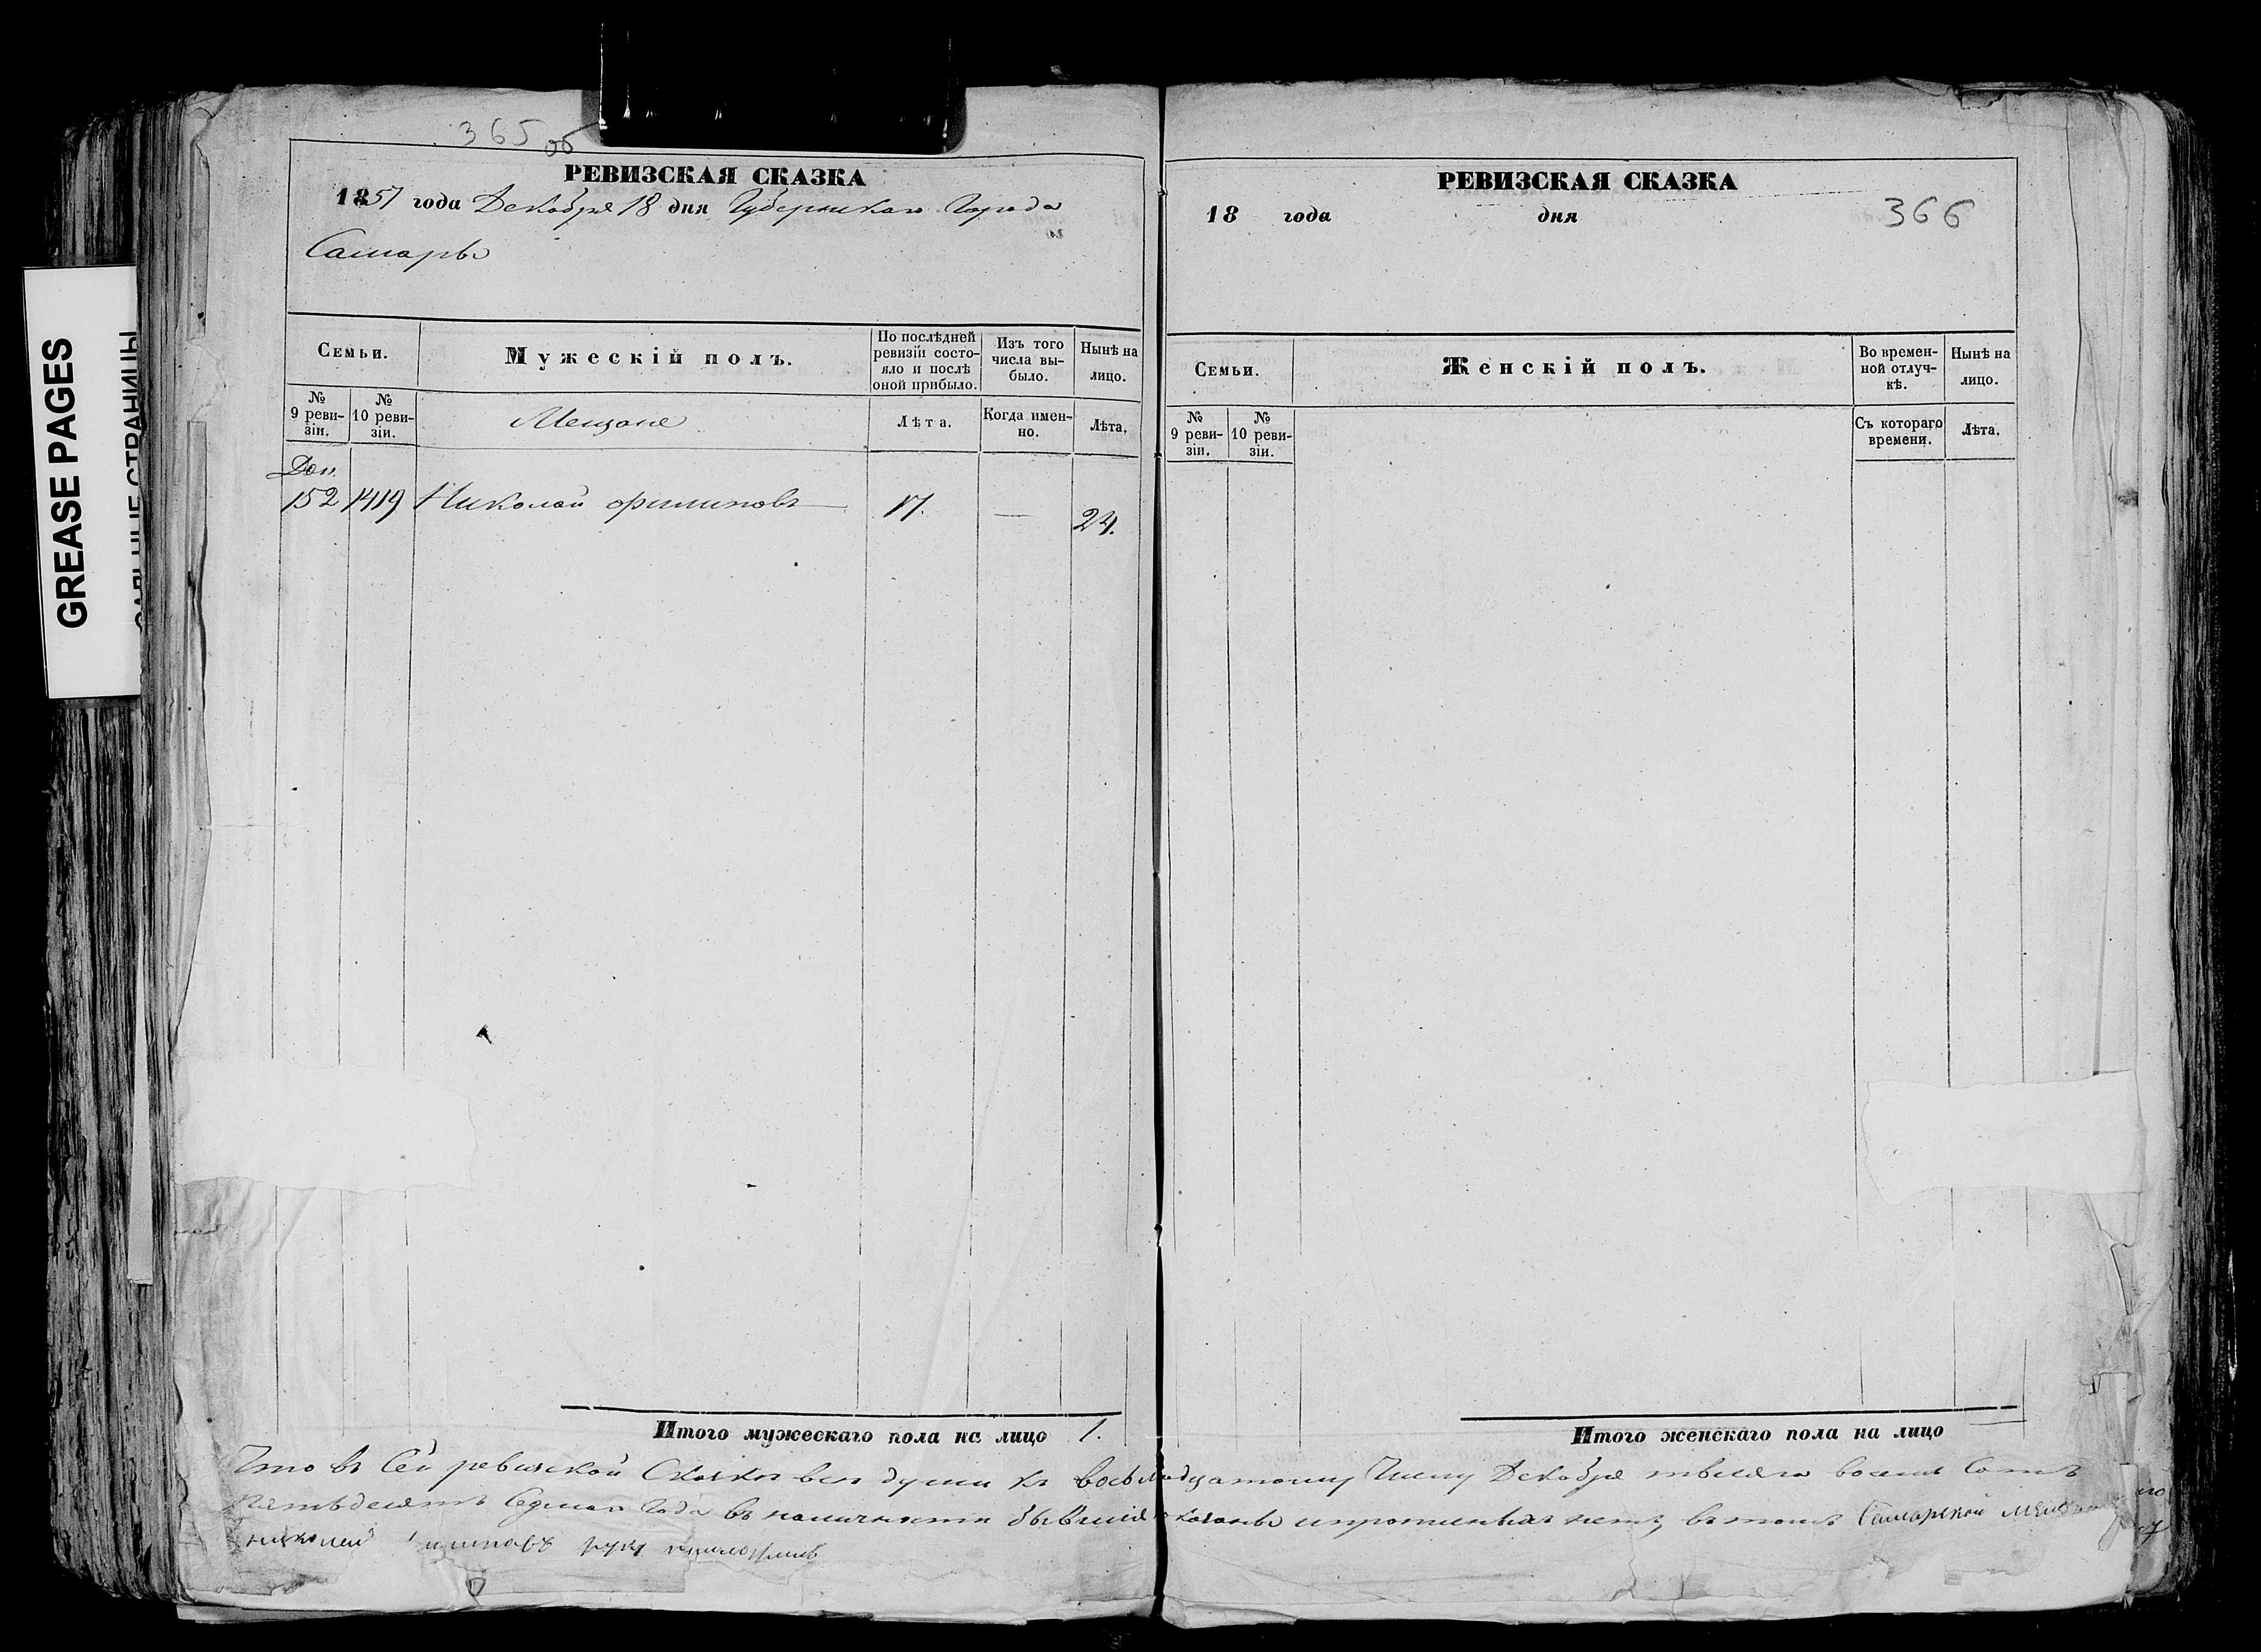 GREASE PAGES
365 об
РЕВИЗСКАЯ СКАЗКА
1857 года Декабря 18 дня Губернскаго Города
Самары
Семьи.
Мужескій полъ.
По послѣдней ревизіи состояло и послѣ оной прибыло.
Изъ того числа выбыло.
Нынѣ на лицо.
№ 9 ревизіи.
№ 10 ревизіи.
Мещане
Лѣта.
Когда именно.
Лѣта.
Доп.
152 1419 Николай Филиповъ 17. — 24.
Итого мужескаго пола на лицо 1.
РЕВИЗСКАЯ СКАЗКА
18 года дня
366
Семьи.
Женскій полъ.
Во временной отлучкѣ.
Нынѣ на лицо.
№ 9 ревизіи.
№ 10 ревизіи.
Съ котораго времени.
Лѣта.
Итого женскаго пола на лицо
Что въ Сей ревизской Сказке все души къ Числу Декабря восемь Сотъ
Седмаго Года въ наличности бывшие въ томъ Самарской
руку приложилъ